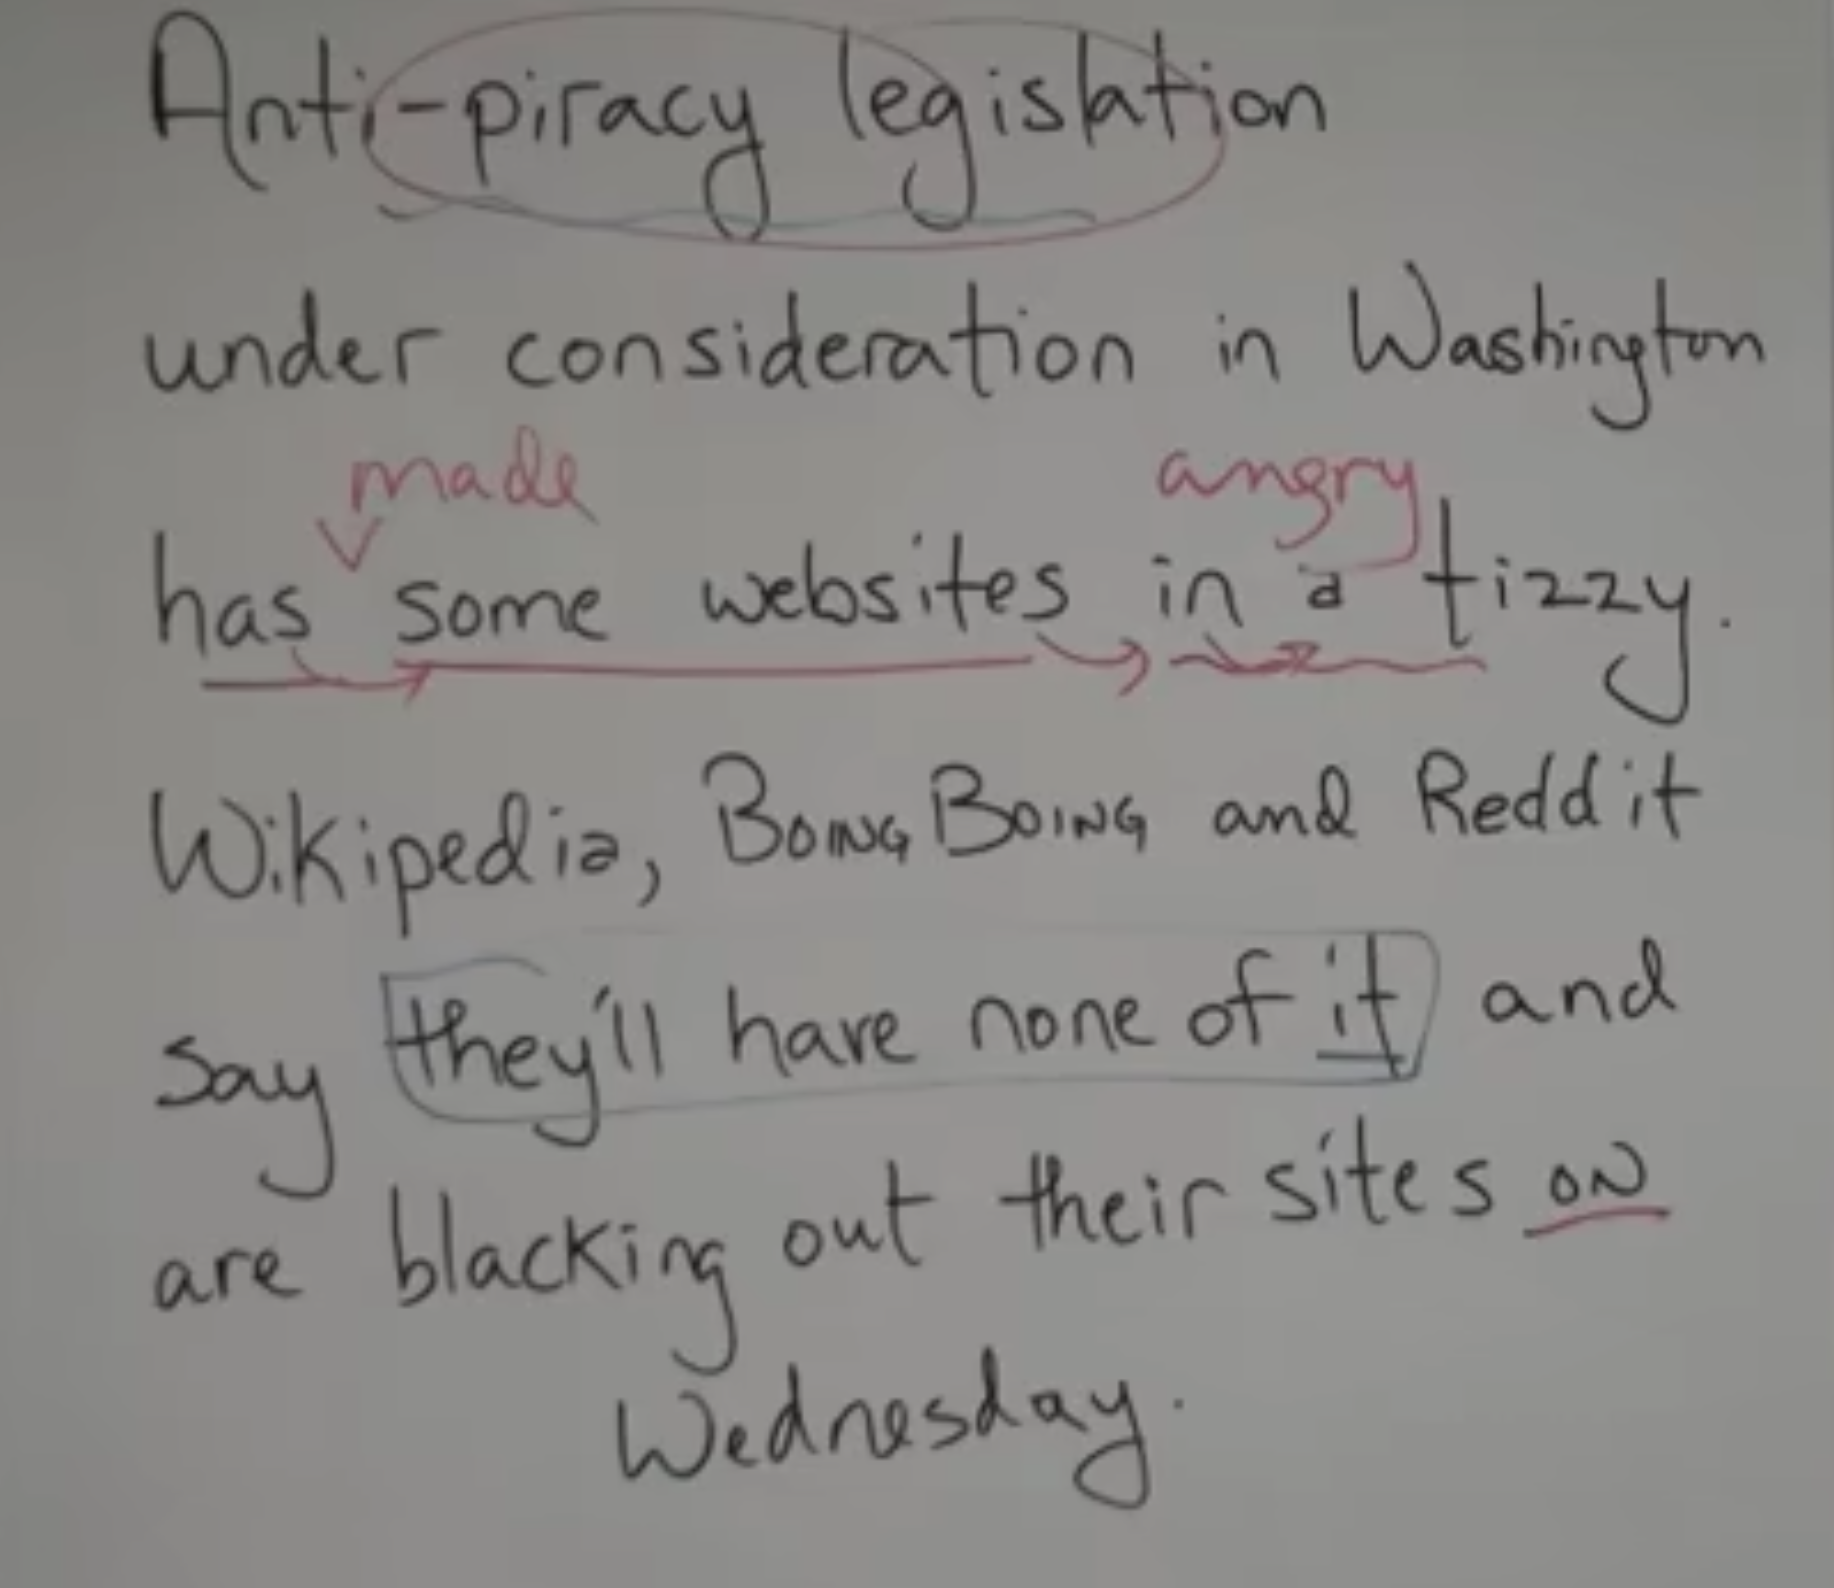 Anti-piracy legislation
under consideration in Washington
made angry
has some websites in a tizzy.
Wikipedia, BOING BOING and Reddit
say they'll have none of it and
are blacking out their sites ON
Wednesday.